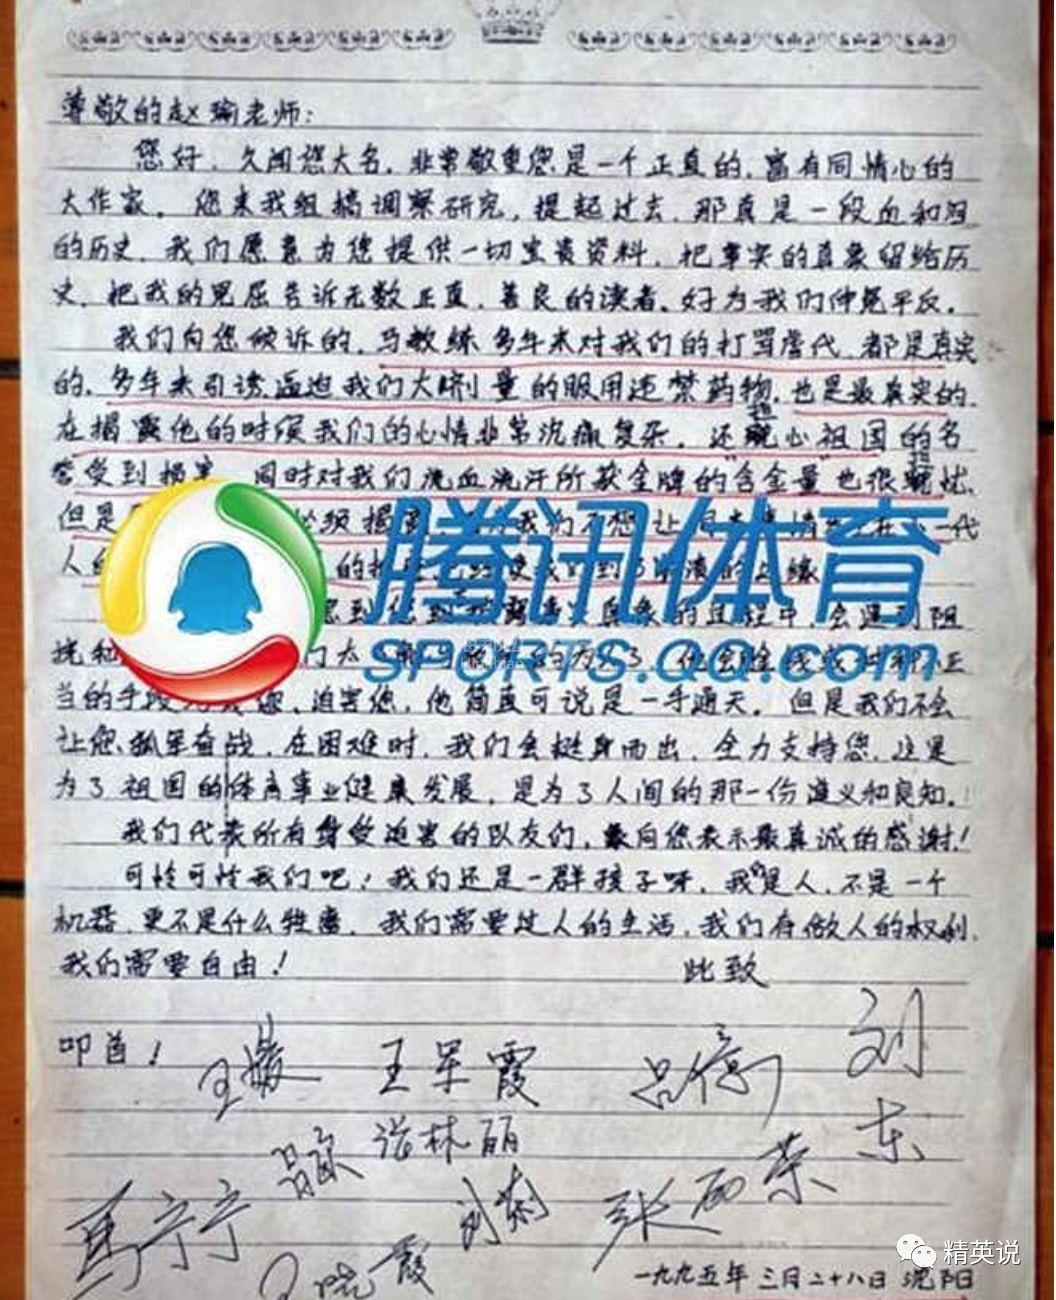 尊敬的赵瑜老师:
您好，久闻您大名，非常敬重您是一个正真的，富有同情心的
大作家。您来我组搞调察研究，提起过去，那真是一段血和泪
的历史，我们愿意为您提供一切宝贵资料，把事实的真象留给历
史，把我的冤屈告诉无数正真、善良的读者。好为我们仲冤平反。
我们向您倾诉的，马教练多年来对我们的打骂虐代，都是真实
的。多年来引诱逼迫我们大剂量的服用违禁药物，也是最真实的。
在揭露他的时候我们的心情非常沉痛复杂，还担心祖国的名
誉受到损害，同时对我们流血流汗所获金牌的“含金量”也很担忧、
但是 必须揭 我们不想让 下一代
人的
腾讯体育
SPORTS.QQ.com
真象的过程中，会遇到阻
挠和
当的手段 您，迫害您，他简直可说是一手通天。但是我们不会
让您孤军奋战，在困难时，我们会挺身而出，全力支持您，这是
为了祖国的体育事业健康发展，是为了人间的那一份道义和良知。
我们代表所有身受迫害的队友们，向您表示最真诚的感谢!
可怜可怜我们吧! 我们还是一群孩子呀，我们是人，不是一个
机器，更不是什么牲畜，我们需要过人的生活，我们有做人的权利，
我们需要自由! 此致
叩首!
王媛 王军霞 吕亿 刘东
吕欧 张林丽
马宁宁 刘莉 张丽荣
王晓霞
一九九五年三月二十八日沈阳
精英说